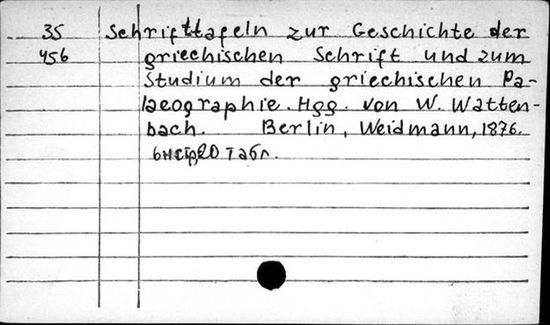 35 Schrifttafeln zur Geschichte der
456 griechischen Schrift und zum
Studium der griechischen Pa-
laeographie. Hgg. von W. Watten-
bach. Berlin, Weidmann, 1876.
20 табл.